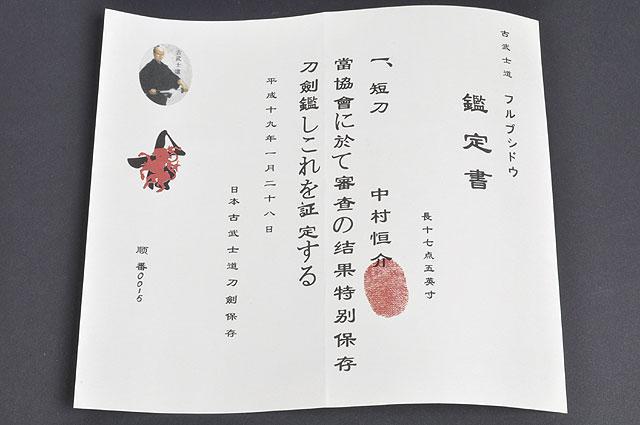 古武士道 フルブシドウ
鑑定書
長十七点五英寸
一、短刀 中村恒介
當協會に於て審查の结果特别保存
刀劍鑑しこれを証定する
平成十九年一月二十八日
日本古武士道刀劍保存
順番0015
古武士道